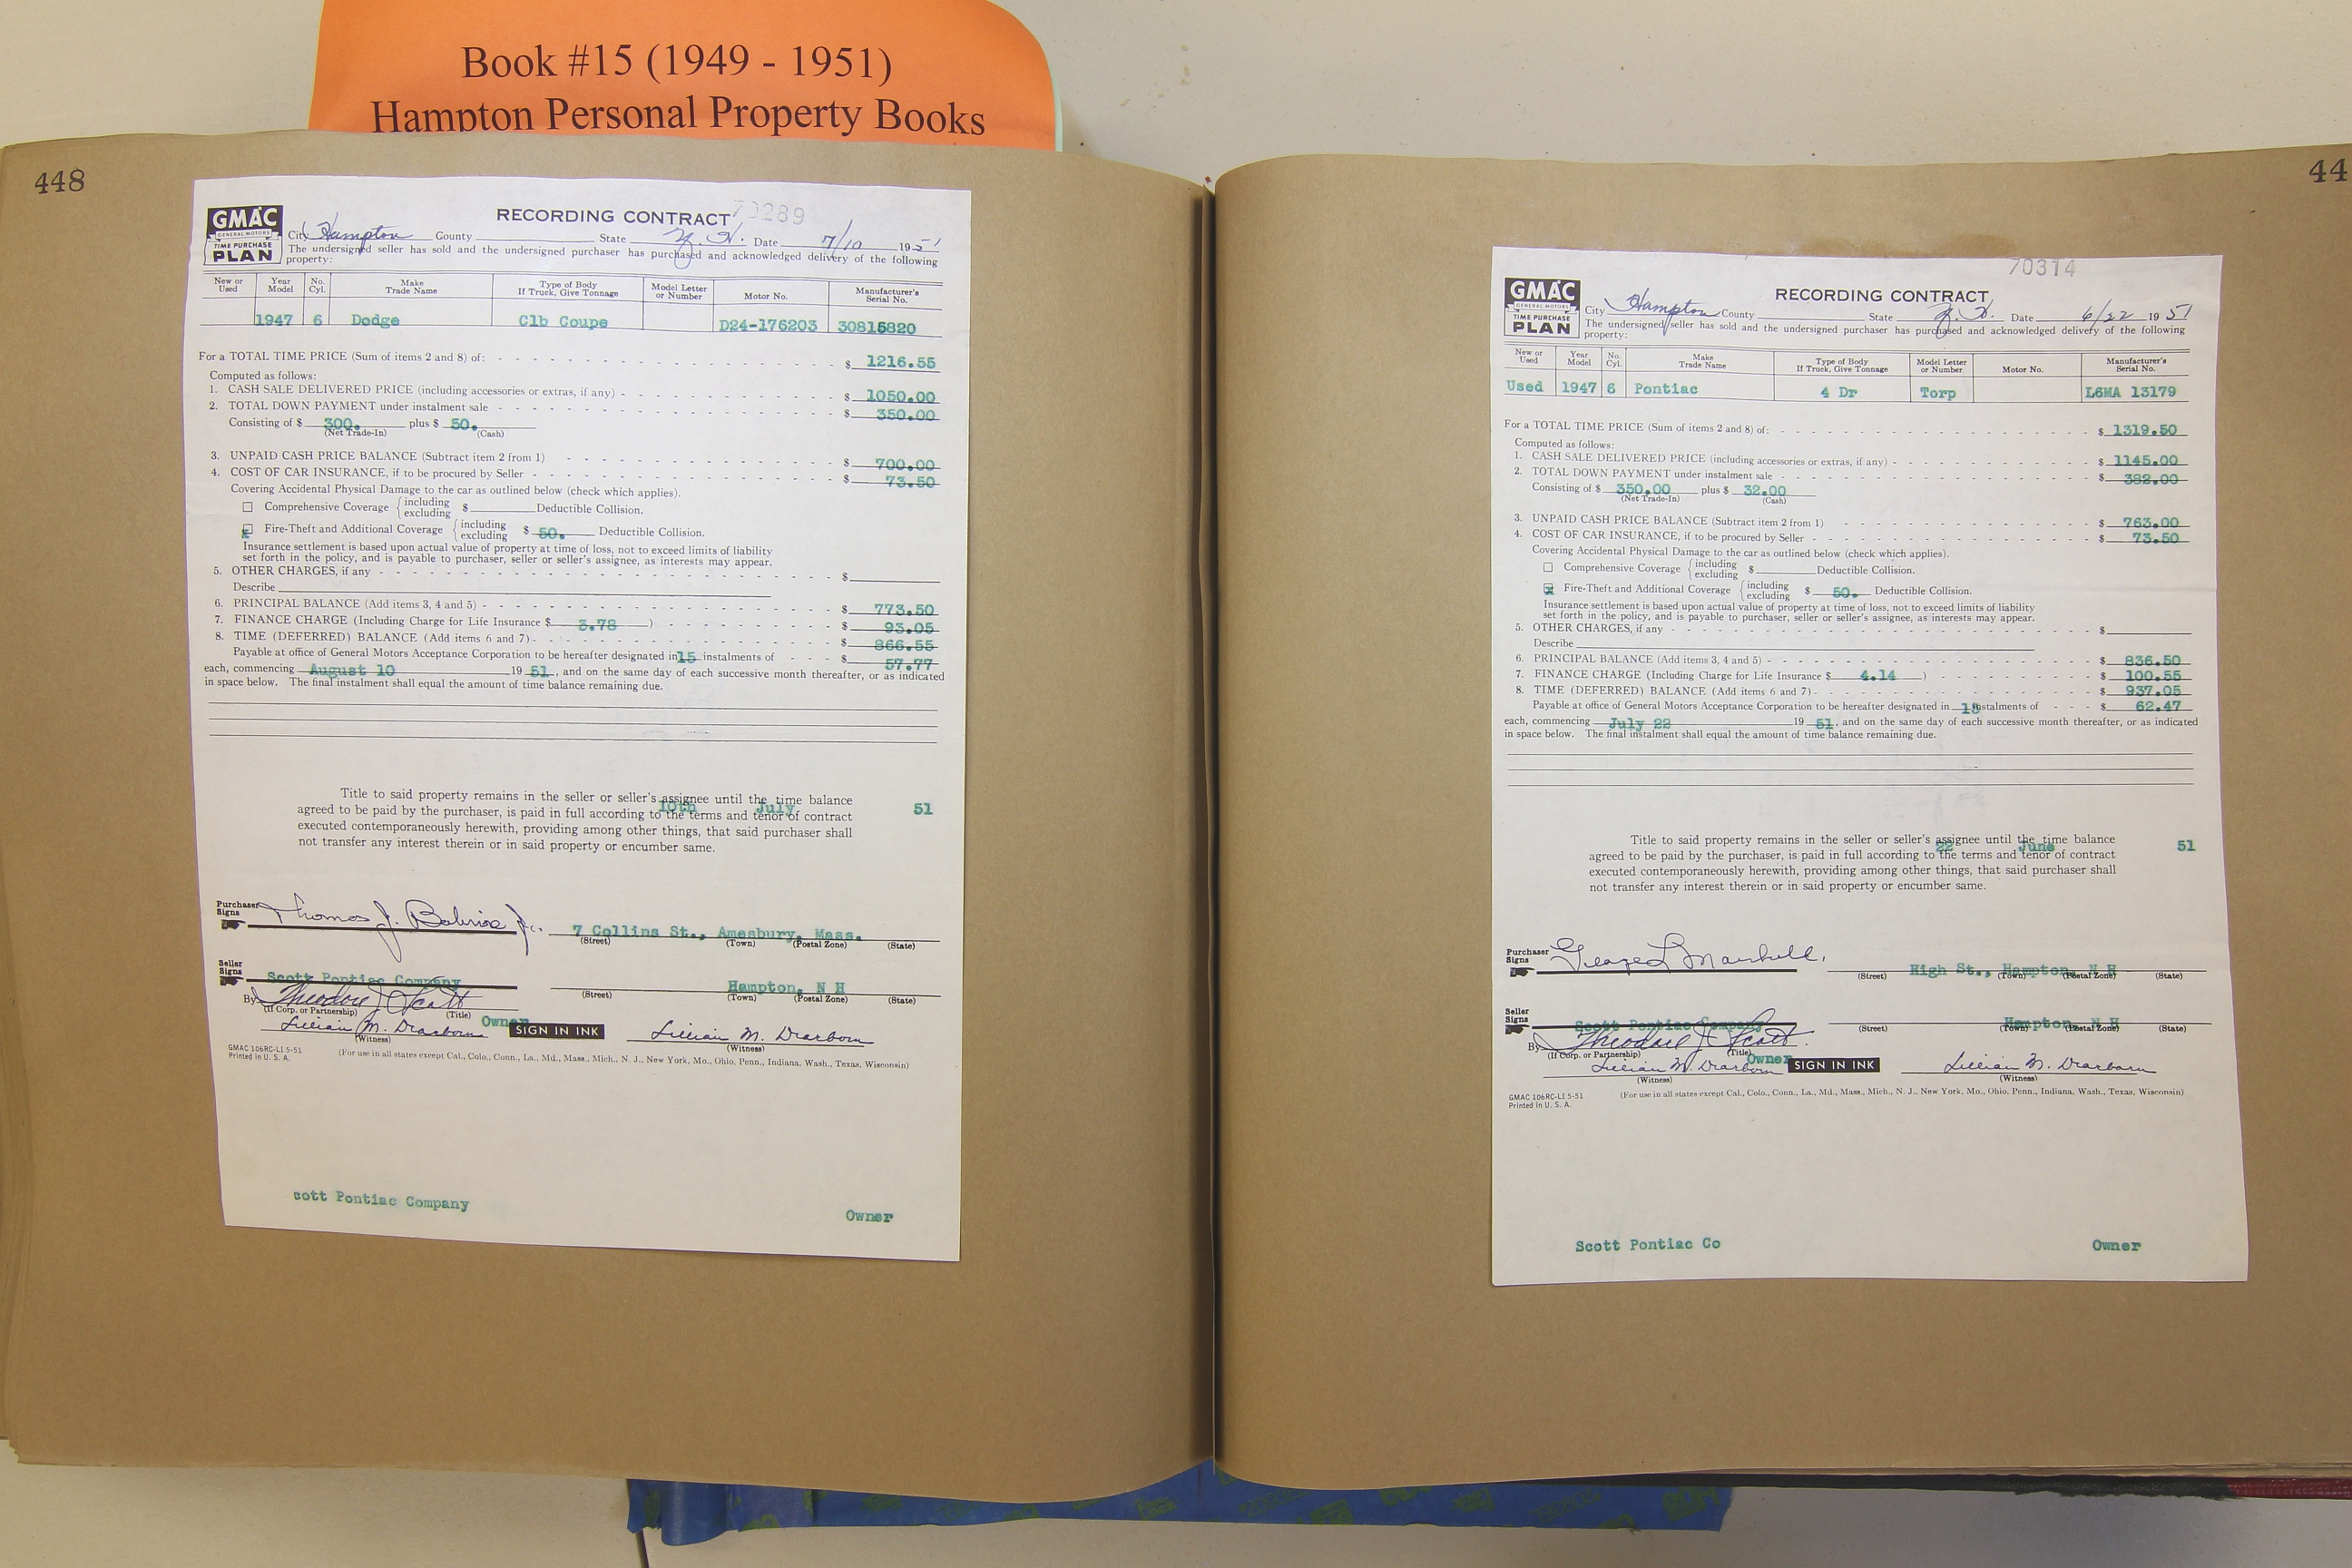 Book #15 (1949 - 1951)
Hampton Personal Property Books
448
70289
GMAC
GENERAL MOTORS
TIME PURCHASE
PLAN
RECORDING CONTRACT
City Hampton County State N. H. Date 7/10 1951
The undersigned seller has sold and the undersigned purchaser has purchased and acknowledged delivery of the following
property:
New or Used Year Model No. Cyl. Make Trade Name Type of Body If Truck, Give Tonnage Model Letter or Number Motor No. Manufacturer's Serial No.
1947 6 Dodge Clb Coupe D24-176203 30815820
For a TOTAL TIME PRICE (Sum of items 2 and 8) of: $ 1216.55
Computed as follows:
1. CASH SALE DELIVERED PRICE (including accessories or extras, if any) $ 1050.00
2. TOTAL DOWN PAYMENT under instalment sale $ 350.00
Consisting of $ 300. plus $ 50.
(Net Trade-In) (Cash)
3. UNPAID CASH PRICE BALANCE (Subtract item 2 from 1) $ 700.00
4. COST OF CAR INSURANCE, if to be procured by Seller $ 73.50
Covering Accidental Physical Damage to the car as outlined below (check which applies).
Comprehensive Coverage { including excluding $ Deductible Collision.
x Fire-Theft and Additional Coverage { including excluding $ 50. Deductible Collision.
Insurance settlement is based upon actual value of property at time of loss, not to exceed limits of liability
set forth in the policy, and is payable to purchaser, seller or seller's assignee, as interests may appear.
5. OTHER CHARGES, if any $
Describe
6. PRINCIPAL BALANCE (Add items 3, 4 and 5) $ 773.50
7. FINANCE CHARGE (Including Charge for Life Insurance $ 3.78 ) $ 93.05
8. TIME (DEFERRED) BALANCE (Add items 6 and 7) $ 866.55
Payable at office of General Motors Acceptance Corporation to be hereafter designated in 15 instalments of $ 57.77
each, commencing August 10 19 51, and on the same day of each successive month thereafter, or as indicated
in space below. The final instalment shall equal the amount of time balance remaining due.
Title to said property remains in the seller or seller's assignee until the time balance
10th July 51
agreed to be paid by the purchaser, is paid in full according to the terms and tenor of contract
executed contemporaneously herewith, providing among other things, that said purchaser shall
not transfer any interest therein or in said property or encumber same.
Purchaser Signs Thomas J. Jr. 7 Collins St., Amesbury, Mass.
(Street) (Town) (Postal Zone) (State)
Seller Signs Scott Pontiac Company Hampton, N H
(Street) (Town) (Postal Zone)
By Theodore J Scott
(If Corp. or Partnership) (Title)
Owner
Lillian M. Dearborn SIGN IN INK Lillian M. Dearborn
(Witness) (Witness)
GMAC 106RC-LI 5-51
Printed in U. S. A.
(For use in all states except Cal., Colo., Conn., La., Md., Mass., Mich., N. J., New York, Mo., Ohio, Penn., Indiana, Wash., Texas, Wisconsin)
cott Pontiac Company
Owner
44
70314
GMAC
GENERAL MOTORS
TIME PURCHASE
PLAN
RECORDING CONTRACT
City Hampton County State N. H. Date 6/22 1951
The undersigned seller has sold and the undersigned purchaser has purchased and acknowledged delivery of the following
property:
New or Used Year Model No. Cyl. Make Trade Name Type of Body If Truck, Give Tonnage Model Letter or Number Motor No. Manufacturer's Serial No.
Used 1947 6 Pontiac 4 Dr Torp L6MA 13179
For a TOTAL TIME PRICE (Sum of items 2 and 8) of: $ 1319.50
Computed as follows:
1. CASH SALE DELIVERED PRICE (including accessories or extras, if any) $ 1145.00
2. TOTAL DOWN PAYMENT under instalment sale $ 382.00
Consisting of $ 350.00 plus $ 32.00
(Net Trade-In) (Cash)
3. UNPAID CASH PRICE BALANCE (Subtract item 2 from 1) $ 763.00
4. COST OF CAR INSURANCE, if to be procured by Seller $ 73.50
Covering Accidental Physical Damage to the car as outlined below (check which applies).
Comprehensive Coverage { including excluding $ Deductible Collision.
x Fire-Theft and Additional Coverage { including excluding $ 50. Deductible Collision.
Insurance settlement is based upon actual value of property at time of loss, not to exceed limits of liability
set forth in the policy, and is payable to purchaser, seller or seller's assignee, as interests may appear.
5. OTHER CHARGES, if any $
Describe
6. PRINCIPAL BALANCE (Add items 3, 4 and 5) $ 836.50
7. FINANCE CHARGE (Including Charge for Life Insurance $ 4.14 ) $ 100.55
8. TIME (DEFERRED) BALANCE (Add items 6 and 7) $ 937.05
Payable at office of General Motors Acceptance Corporation to be hereafter designated in 15 instalments of $ 62.47
each, commencing July 22 19 51, and on the same day of each successive month thereafter, or as indicated
in space below. The final instalment shall equal the amount of time balance remaining due.
Title to said property remains in the seller or seller's assignee until the time balance
22 June 51
agreed to be paid by the purchaser, is paid in full according to the terms and tenor of contract
executed contemporaneously herewith, providing among other things, that said purchaser shall
not transfer any interest therein or in said property or encumber same.
Purchaser Signs George L High St., Hampton, N H
(Street) (Town) (Postal Zone) (State)
Seller Signs Scott Pontiac Company Hampton, N H
(Street) (Town) (Postal Zone) (State)
By Theodore J Scott
(If Corp. or Partnership) (Title)
Owner
Lillian M. Dearborn SIGN IN INK Lillian M. Dearborn
(Witness) (Witness)
GMAC 106RC-LI 5-51
Printed in U. S. A.
(For use in all states except Cal., Colo., Conn., La., Md., Mass., Mich., N. J., New York, Mo., Ohio, Penn., Indiana, Wash., Texas, Wisconsin)
Scott Pontiac Co
Owner